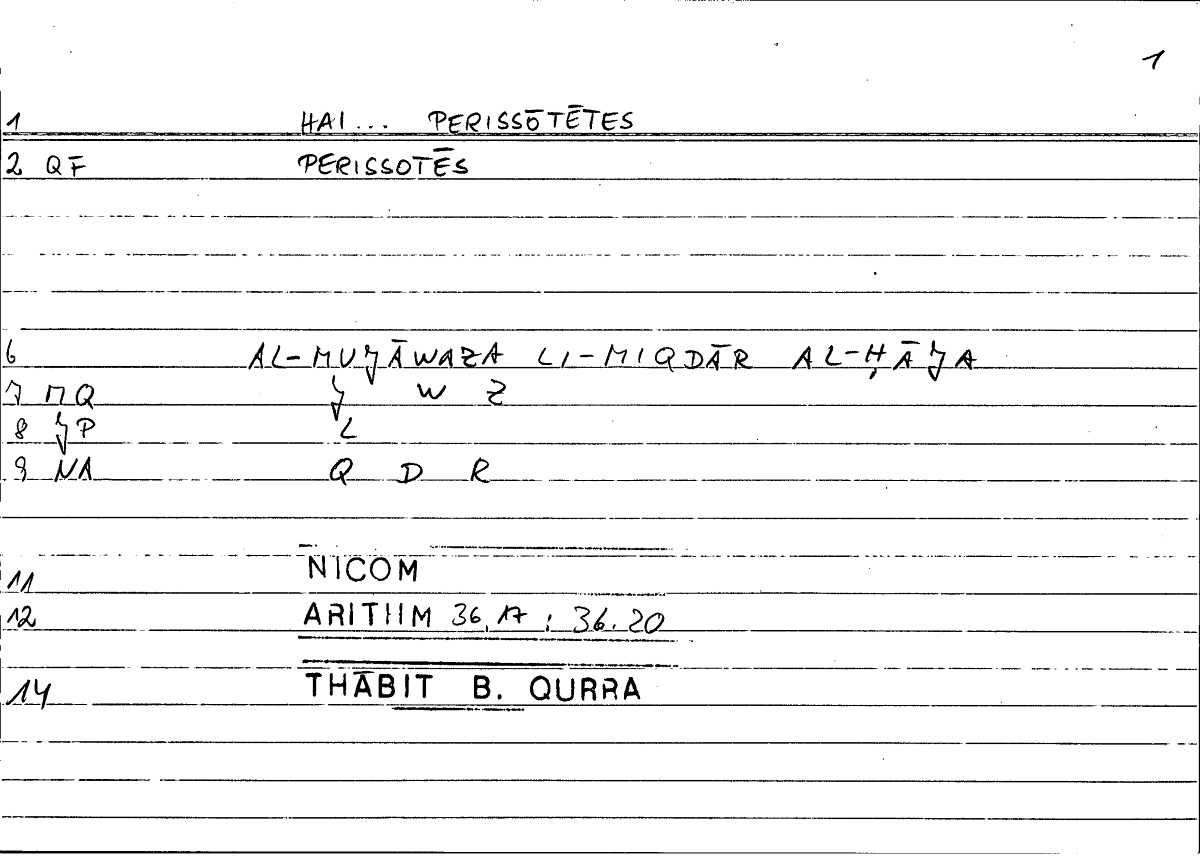 1
1 HAI... PERISSŌTĒTES
2 QF PERISSOTĒS
6 AL-MUǦĀWAZA LI-MIQDĀR AL-ḤĀǦA
7 MQ Ǧ W Z
8 ǦP L
9 NA Q D R
11 NICOM
12 ARITHM 36,17 ; 36.20
14 THĀBIT B. QURRA